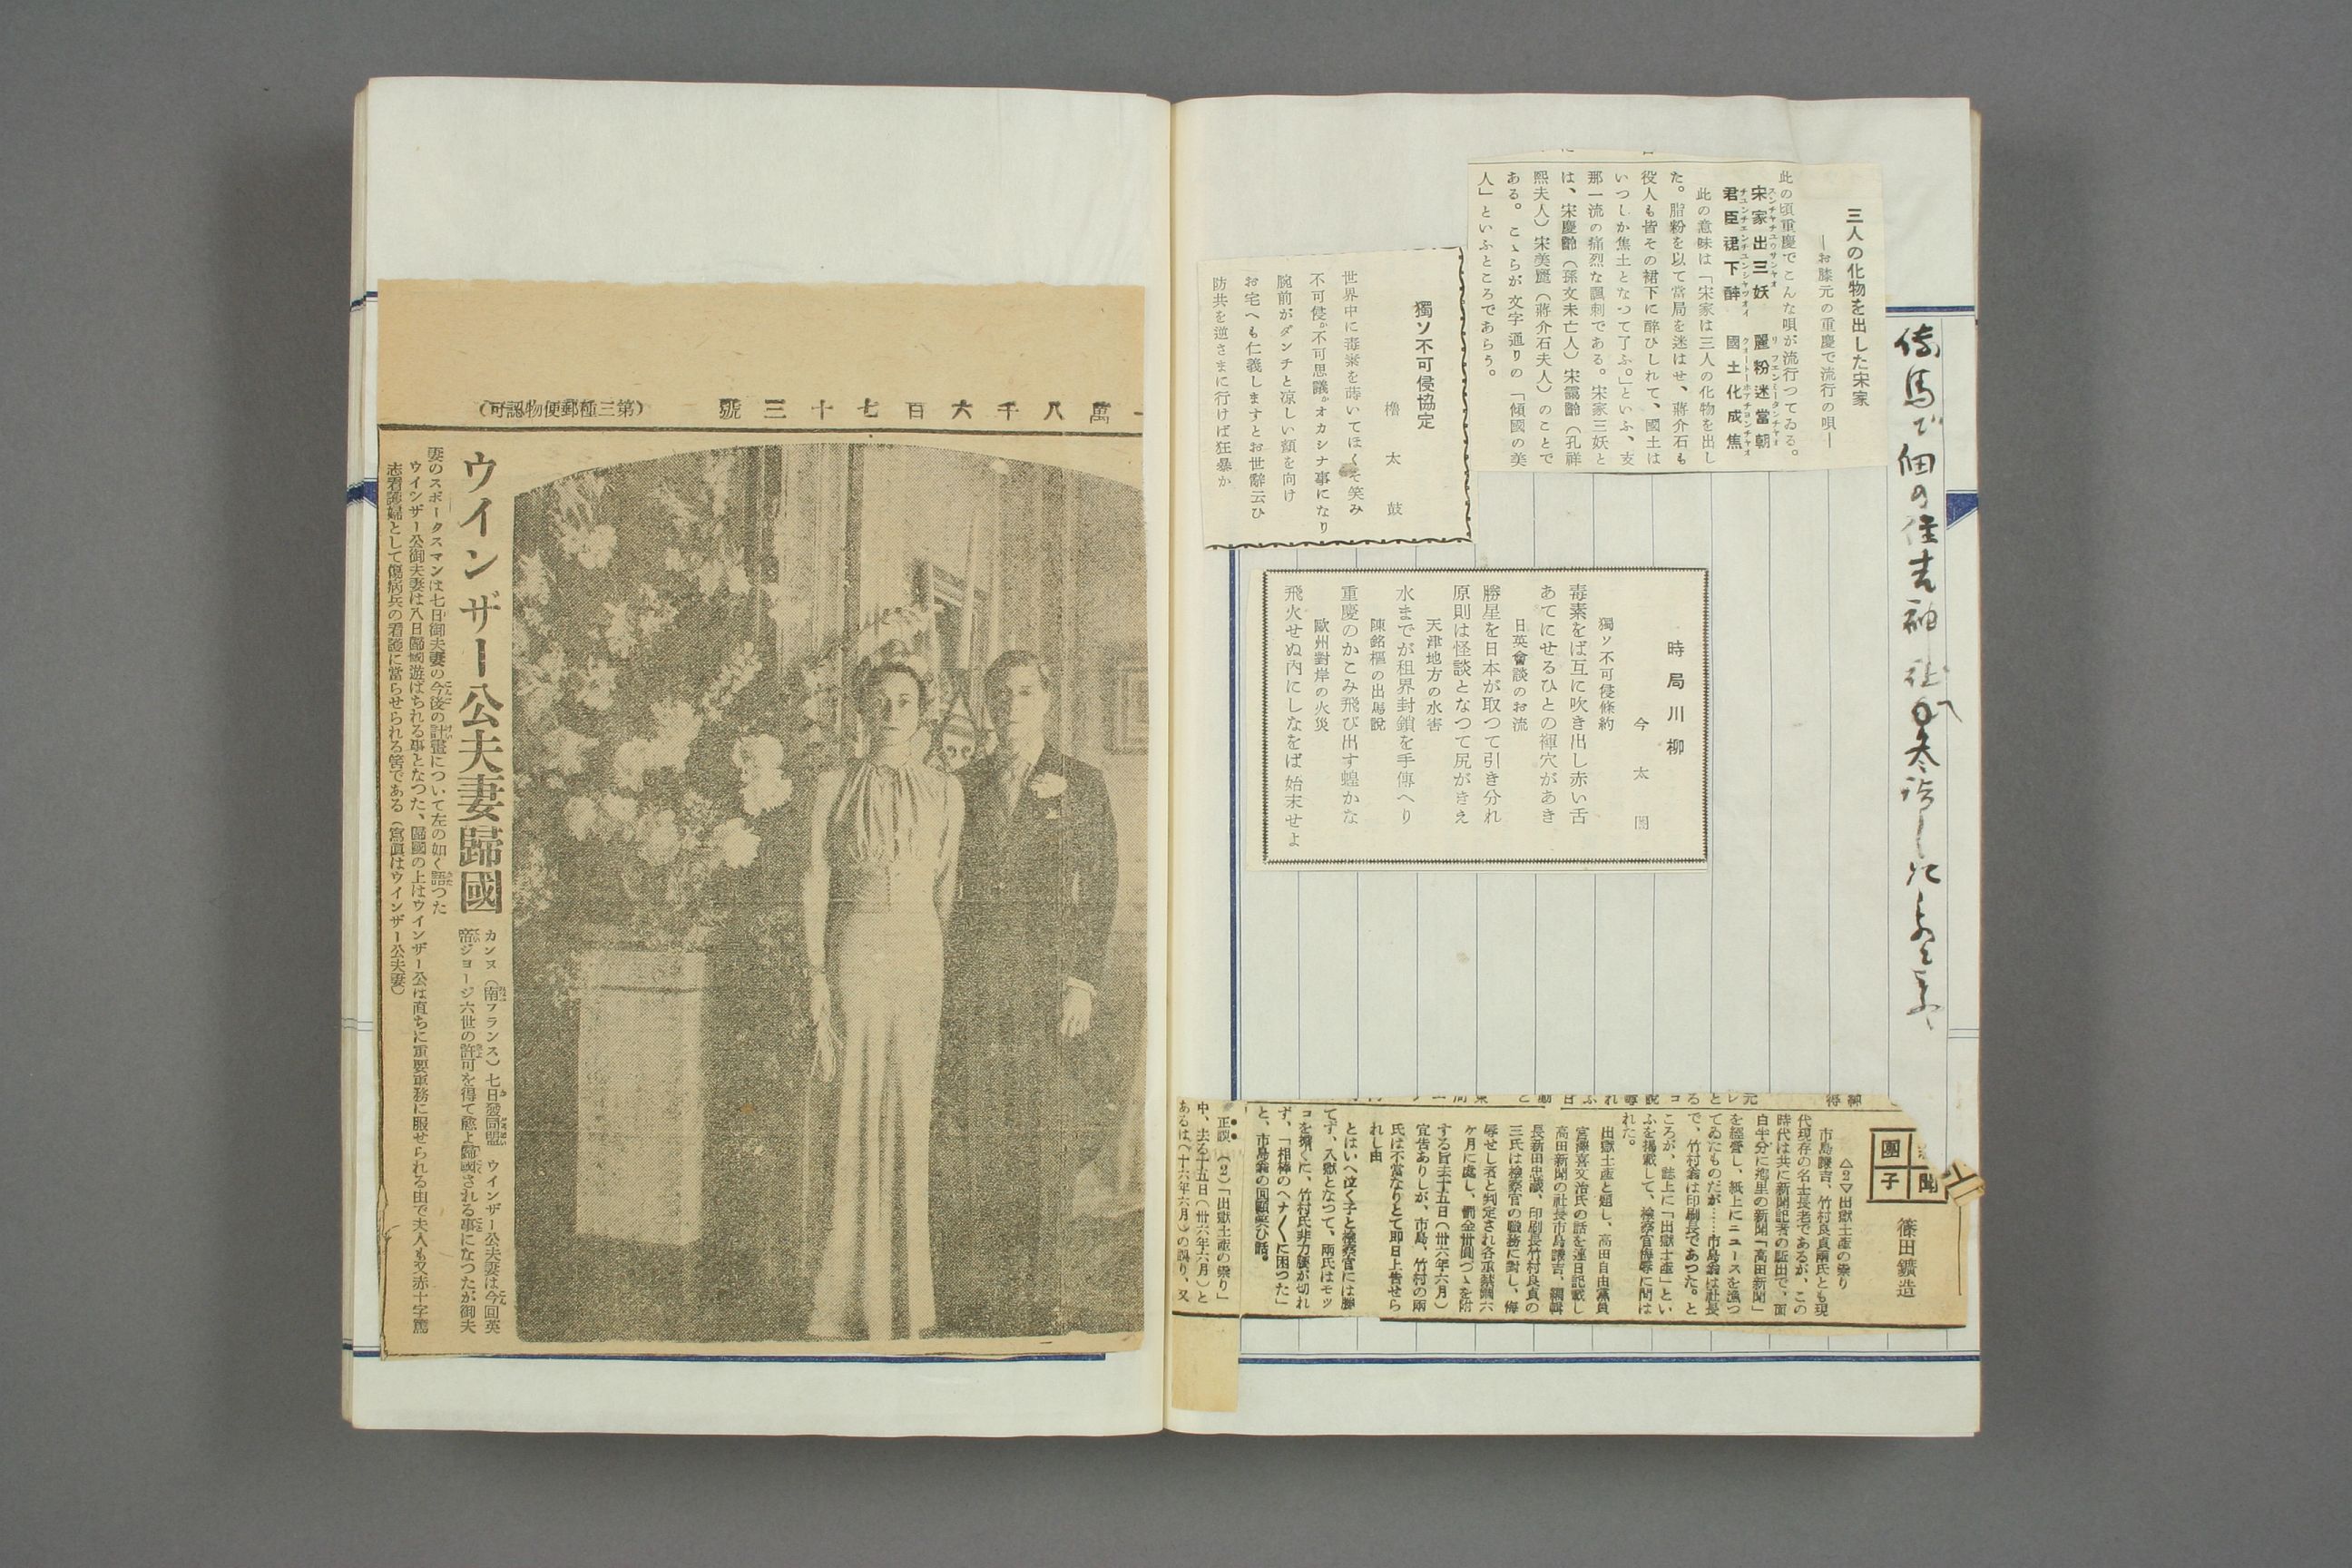 三人の化物を出した宋家
―お膝元の重慶で流行の唄―
此の頃重慶でこんな唄が流行つてゐる。
宋家出三妖　麗粉迷當朝
君臣裙下醉　國土化成焦
此の意味は「宋家は三人の化物を出し
た。脂粉を以て當局を迷はせ、蔣介石も
役人も皆その裙下に醉ひしれて、國土は
いつしか焦土となつて了ふ。」といふ、支
那一流の痛烈な諷刺である。宋家三妖と
は、宋慶齡（孫文未亡人）宋靄齡（孔祥
熙夫人）宋美麗（蔣介石夫人）のことで
ある。こゝらが文字通りの「傾國の美
人」といふところであらう。
獨ソ不可侵協定
櫓太鼓
世界中に毒素を蒔いてほくそ笑み
不可侵が不可思議がオカシナ事になり
腕前がダンチと凉しい顏を向け
お宅へも仁義しますとお世辭云ひ
防共を逆さまに行けば狂暴か
時局川柳
今太閤
獨ソ不可侵條約
毒素をば互に吹き出し赤い舌
あてにせるひとの褌穴があき
日英會談のお流
勝星を日本が取つて引き分れ
原則は怪談となつて尻がきえ
天津地方の水害
水までが租界封鎖を手傳へり
陳銘樞の出馬說
重慶のかこみ飛び出す蝗かな
歐州對岸の火災
飛火せぬ內にしなをば始末せよ
聞
團子
篠田鑛造
△2▽出獄土產の祟り
市島謙吉、竹村良貞兩氏とも現
代現存の名士長老であるが、この
時代は共に新聞記者の駈出で、面
白半分に地里の新聞「高田新聞」
を經營し、紙上にニュースを漁つ
てゐたものだが……市島翁は社長
で、竹村翁は印刷長であつた。と
ころが、誌上に「出獄土產」とい
ふを揭載して、檢察官侮辱に問は
れた。
出獄土產と題し、高田自由黨員
宮澤喜文治氏の話を連日記載し
高田新聞の社長市島謙吉、編輯
長新田忠議、印刷長竹村良貞の
三氏は檢察官の職務に對し、侮
辱せし者と判定され各重禁錮六
ケ月に處し、罰金卅圓づゝを附
する旨去十五日（卅六年六月）
宣告ありしが、市島、竹村の兩
氏は不當なりとて即日上告せら
れし由
とはいへ泣く子と檢察官には勝
てず、入獄となつて、兩氏はモツ
コを擔ぐに、竹村氏非力腰が切れ
ず、「相棒のヘナ〱に困つた」
と、市島翁の回顧笑ひ話。
正誤（2）「出獄土產の祟り」
中、去る十五日（卅六年六月）と
あるは（十六年六月）の誤り、又
（第三種郵便物認可）　萬八千六百七十三號
ウインザー公夫妻歸國
カンヌ（南フランス）七日發同盟　ウインザー公夫妻は今回英
帝ジョージ六世の許可を得て愈よ歸國される事になつたが御夫
妻のスポークスマンは七日御夫妻の今後の計畫について左の如く語つた
ウインザー公御夫妻は八日歸國遊ばちれる事となつた、歸國の上はウインザー公は直ちに重要軍務に服せられる由で夫人も又赤十字篤
志看護婦として傷病兵の看護に當らせられる筈である（寫眞はウインザー公夫妻）